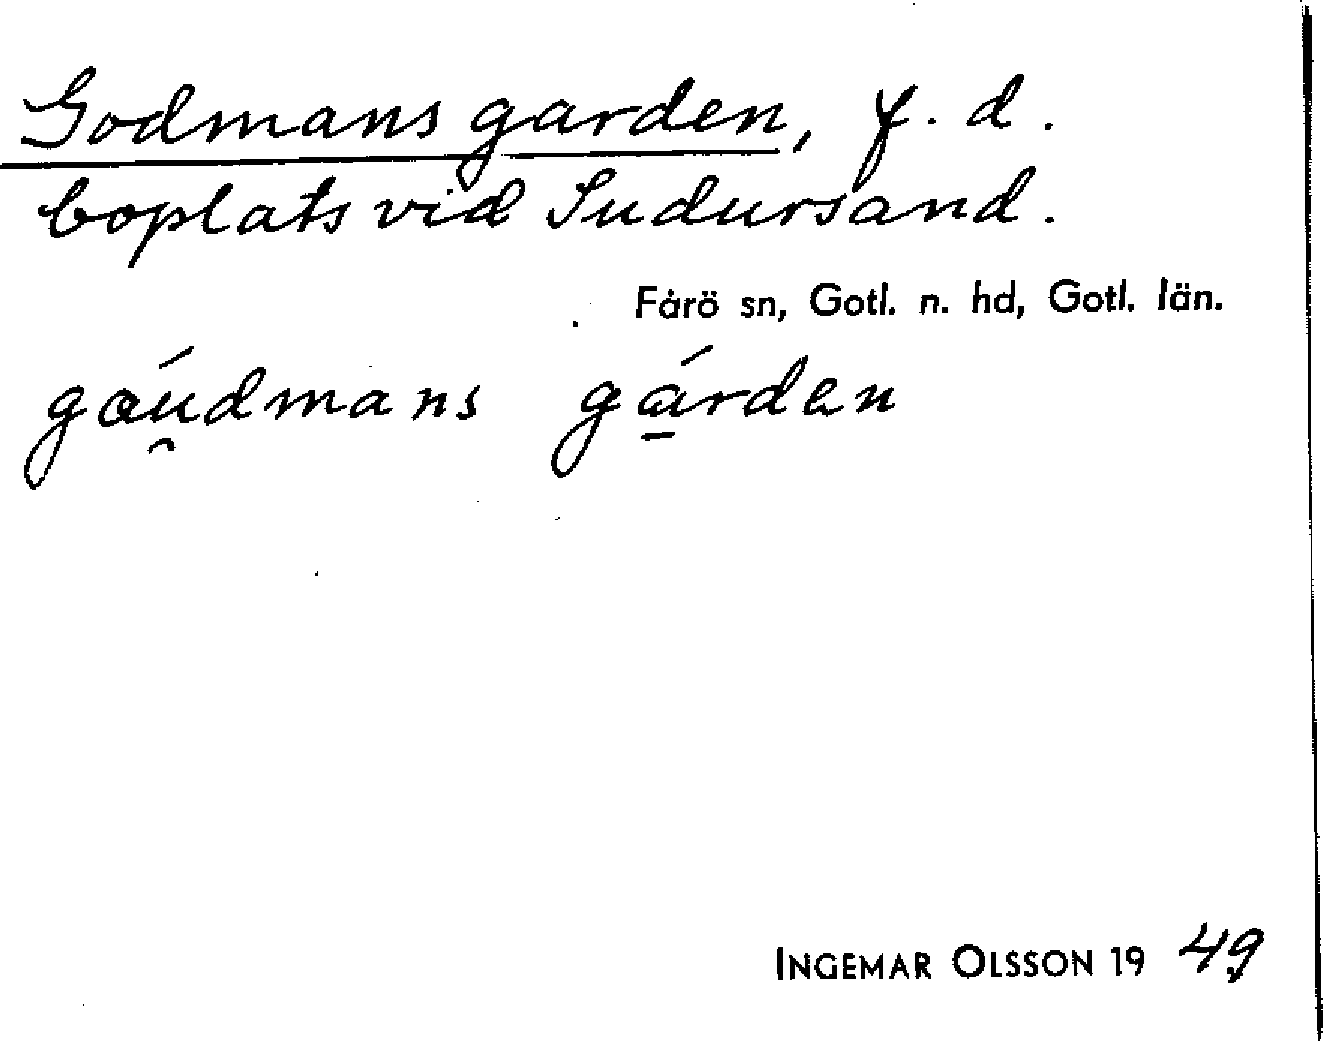 Godmans garden, f. d.
boplats vid Sudursand.
Fårö sn, Gotl. n. hd, Gotl. län.
gaú̯dmans gá̱rden
INGEMAR OLSSON 19 49